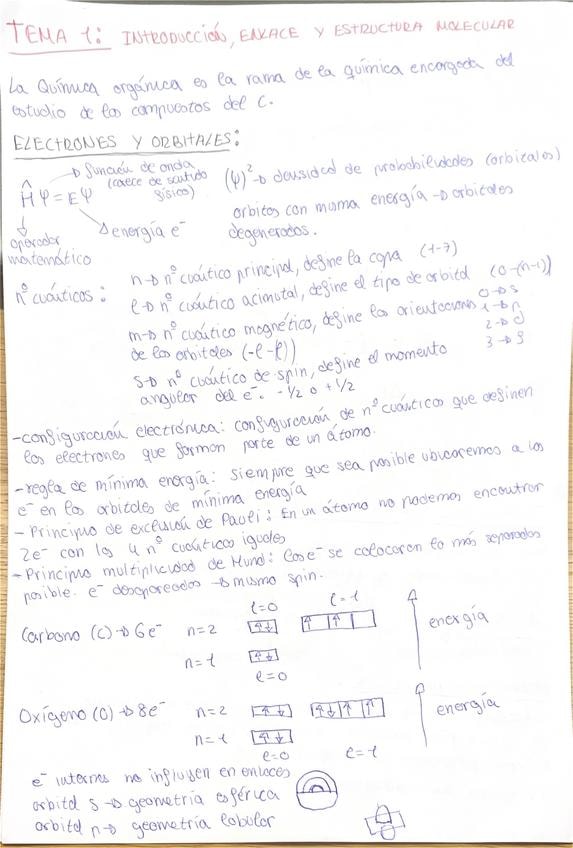 TEMA 1: INTRODUCCIÓN, ENLACE Y ESTRUCTURA MOLECULAR
La Química orgánica es la rama de la química encargada del
estudio de los compuestos del C.
ELECTRONES Y ORBITALES:
→ función de onda
(carece de sentido
físico)
Ĥψ = Eψ
→ energía e⁻
↓
operador
matemático
(ψ)² → densidad de probabilidades (orbitales)
orbitos con misma energía → orbitales
degenerados.
nº cuánticos:
n → nº cuántico principal, define la capa (1-7)
l → nº cuántico acimutal, define el tipo de orbital (0-(n-1))
0 → s
1 → p
2 → d
3 → f
m → nº cuántico magnético, define las orientaciones
de los orbitales (-l - l))
s → nº cuántico de spin, define el momento
angular del e⁻. -1/2 o +1/2
-configuración electrónica: configuración de nº cuánticos que definen
los electrones que forman parte de un átomo.
-regla de mínima energía: siempre que sea posible ubicaremos a los
e⁻ en los orbitales de mínima energía
- Principio de exclusión de Pauli: En un átomo no podemos encontrar
2e⁻ con los 4 nº cuánticos iguales
- Principio multiplicidad de Hund: los e⁻ se colocaran lo más separados
posible. e⁻ desapareados → mismo spin.
l=0 l=1
Carbono (C) → 6e⁻ n=2 ↑↓ ↑ ↑ energía
n=1 ↑↓
l=0
Oxígeno (O) → 8e⁻ n=2 ↑↓ ↑↓ ↑ ↑ energía
n=1 ↑↓
l=0 l=1
e⁻ internos no influyen en enlaces
orbital s → geometría esférica
orbital p → geometría lobular